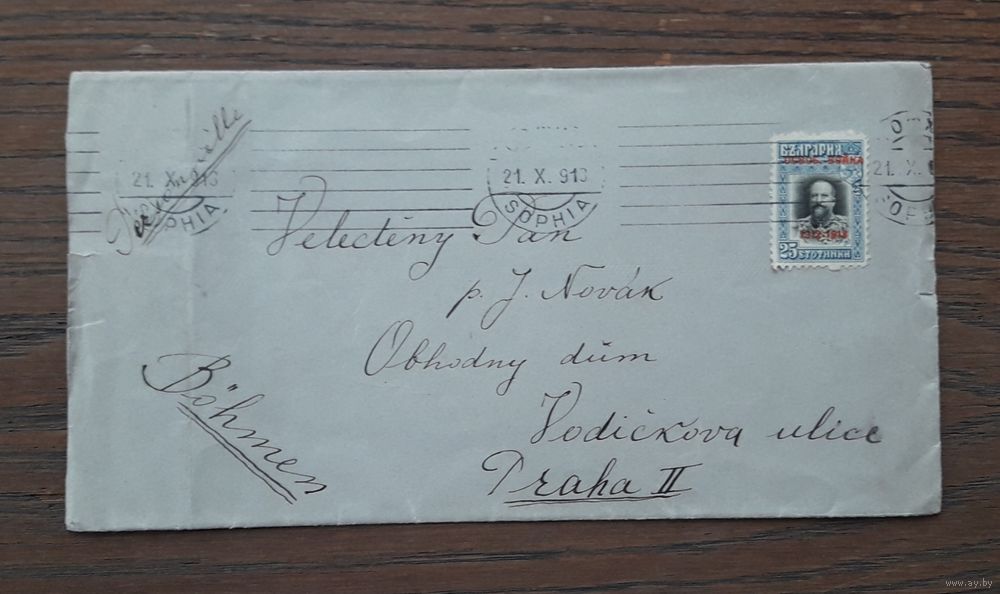 21. X. 913
PHIA
21. X. 913
SOPHIA
21. X.
OP
БЪЛГАРИЯ
ОСВОБ. ВОЙНА
1912-1913
25 СТОТИНКИ
Velectěný Pan
p. J. Novák
Obhodny dům
Vodičkova ulice
Praha II
Böhmen
www.ay.by